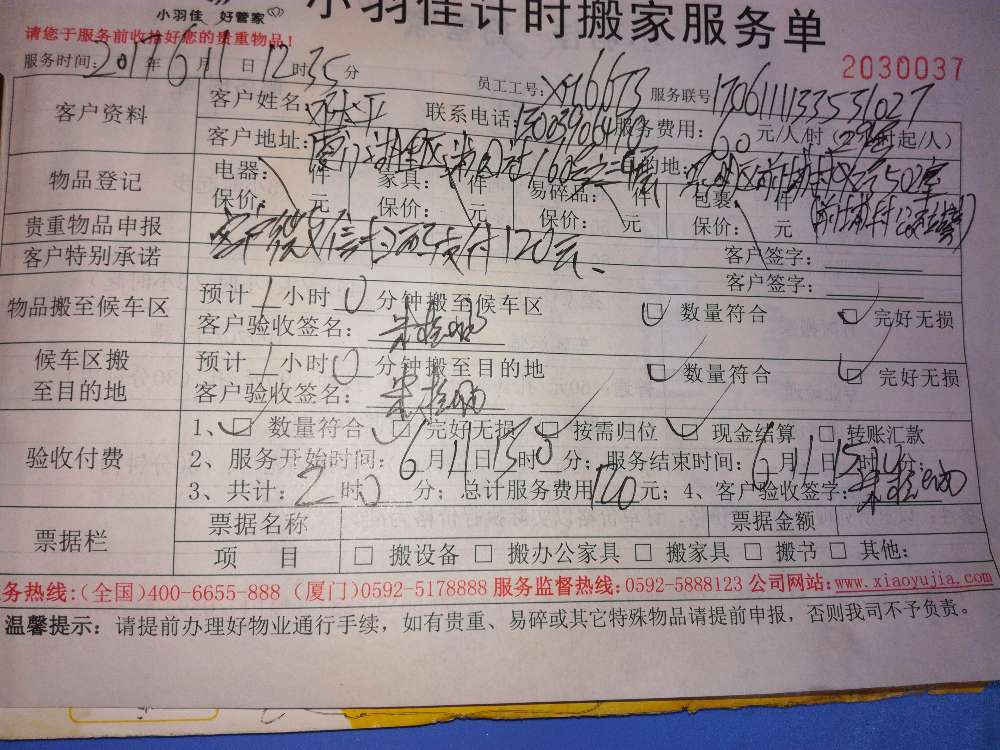 小羽佳 好管家
小羽佳计时搬家服务单
请您于服务前收拾好您的贵重物品!
2030037
服务时间: 2017年6月11日12时35分 员工工号: 服务联号
客户资料 客户姓名: 联系电话: 服务费用: 60元/人/时(2时起/人)
客户地址:
物品登记 电器: 件 家具: 件 易碎品: 件 包裹: 件
保价: 元 保价: 元 保价: 元 保价: 元
贵重物品申报 客户签字:
客户特别承诺 客户签字:
物品搬至候车区 预计1小时0分钟搬至候车区 □ 数量符合 □ 完好无损
客户验收签名:
候车区搬至目的地 预计1小时0分钟搬至目的地 □ 数量符合 □ 完好无损
客户验收签名:
验收付费 1、□ 数量符合 □ 完好无损 □ 按需归位 □ 现金结算 □ 转账汇款
2、服务开始时间: 6月11日13时0分; 服务结束时间: 6月11日15时0分;
3、共计: 2时0分; 总计服务费用120元; 4、客户验收签字:
票据栏 票据名称 票据金额
项 目 □ 搬设备 □ 搬办公家具 □ 搬家具 □ 搬书 □ 其他:
务热线:(全国)400-6655-888 (厦门)0592-5178888 服务监督热线:0592-5888123 公司网站:www.xiaoyujia.com
温馨提示: 请提前办理好物业通行手续, 如有贵重、易碎或其它特殊物品请提前申报, 否则我司不予负责。